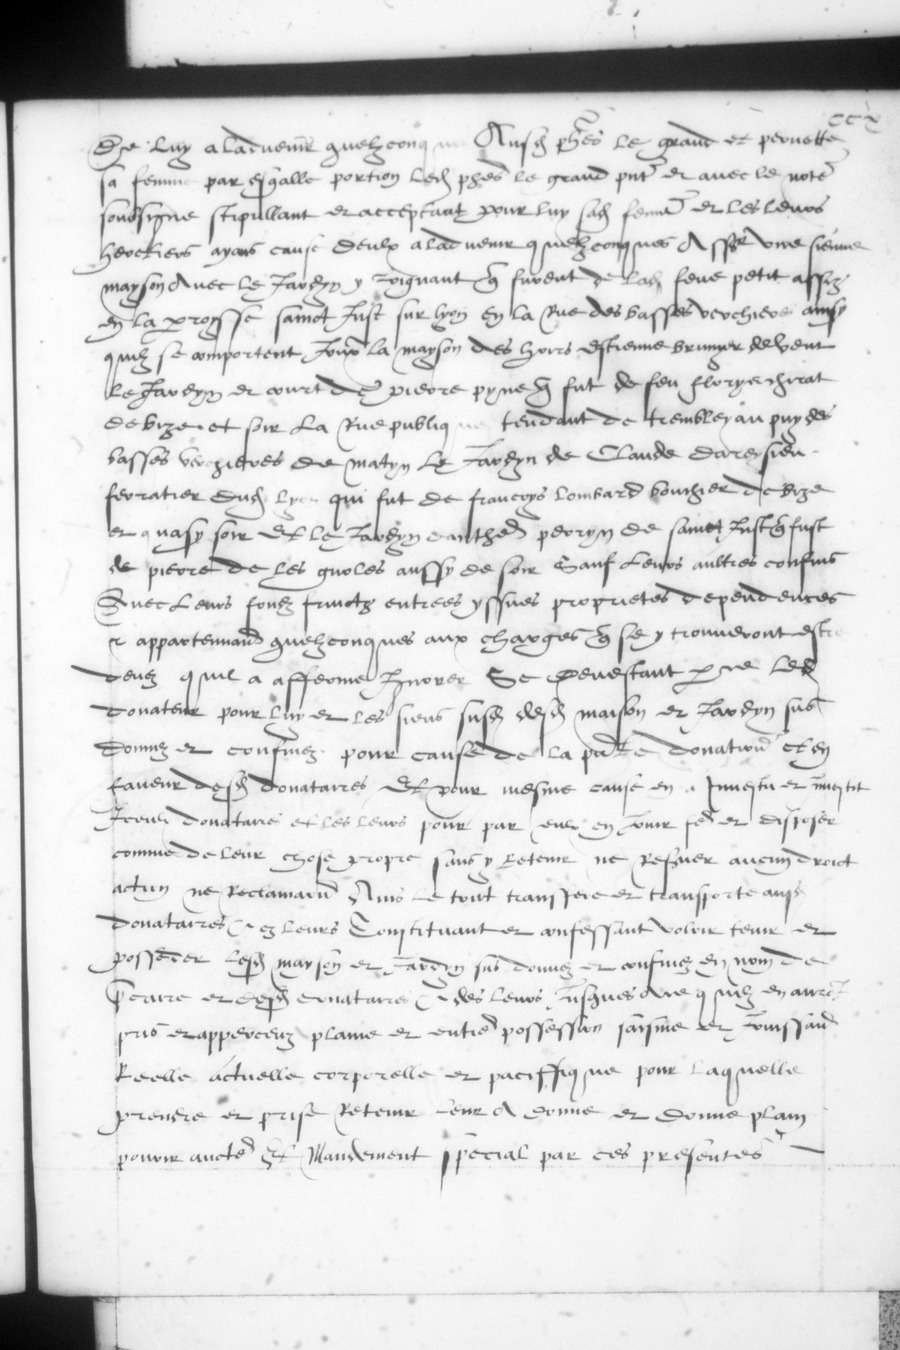 CCX
De luy a ladvenir quelzconques Ausd phes le grand et pernette
sa femme par esgalle portion led phes le grand pnt et avec le note
soubsigne stipullant et acceptant pour luy sad feme et les leurs
heretiers ayans cause deulx a ladvenir quelzconques Assr une sienne
mayson Avec le Jardyn y Joignant q furent de lad feue petit assiz
en la parroysse sainct Just sur lyon en la Rue des basses verchieres ainsy
quilz se comportent Joux la mayson des hoirs estienne brunyer de vent
le Jardyn et court de pierre pyne q fut de feu florye chirat
de bize et soir La Rue publique tendant de trembley au puy des
basses verchieres de matyn Le Jardyn de Claude
ferratier dud lyon qui fut de francoys lombard bouchier de bize
et quasy soir Et le Jardyn danthe perryn de sainct Just q fust
de pierre de les guoles aussy de soir Sauf Leurs aultres confins
Avec Leurs fondz fruictz entrees yssues proprietes dependences
et appartenances quelzconques aux charges q se y trouveront estre
deuez quil a afferme Ignorer Se devestant par ce led
donateur pour luy et les siens susd desd maison et Jardyn sus
donnez et confinez pour cause de la pnte donation Et en
faveur desd donataires Et pour mesme cause en a Investu et investit
Iceulx donataires et les leurs pour par eulx en Jouir fe et disposer
comme de leur chose propre sans y Retenir ne Reserver aucun droict
action ne Reclamation Ains le tout transfere et transporte ausd
donataires et ez leurs Constituant et confessant voloir tenir et
posseder lesd mayson et Jardyn sus donnez et confinez en nom de
precaire et desd donataires et des leurs Jusques Ace quilz en auront
pris et apperceuz plaine et entiere possession saisine et Jouissance
Reelle actuelle corporelle et paciffique pour Laquelle
prendre et prise Retenir leur A donne et donne plain
pouvoir aucte Et Mandement special par ces presentes